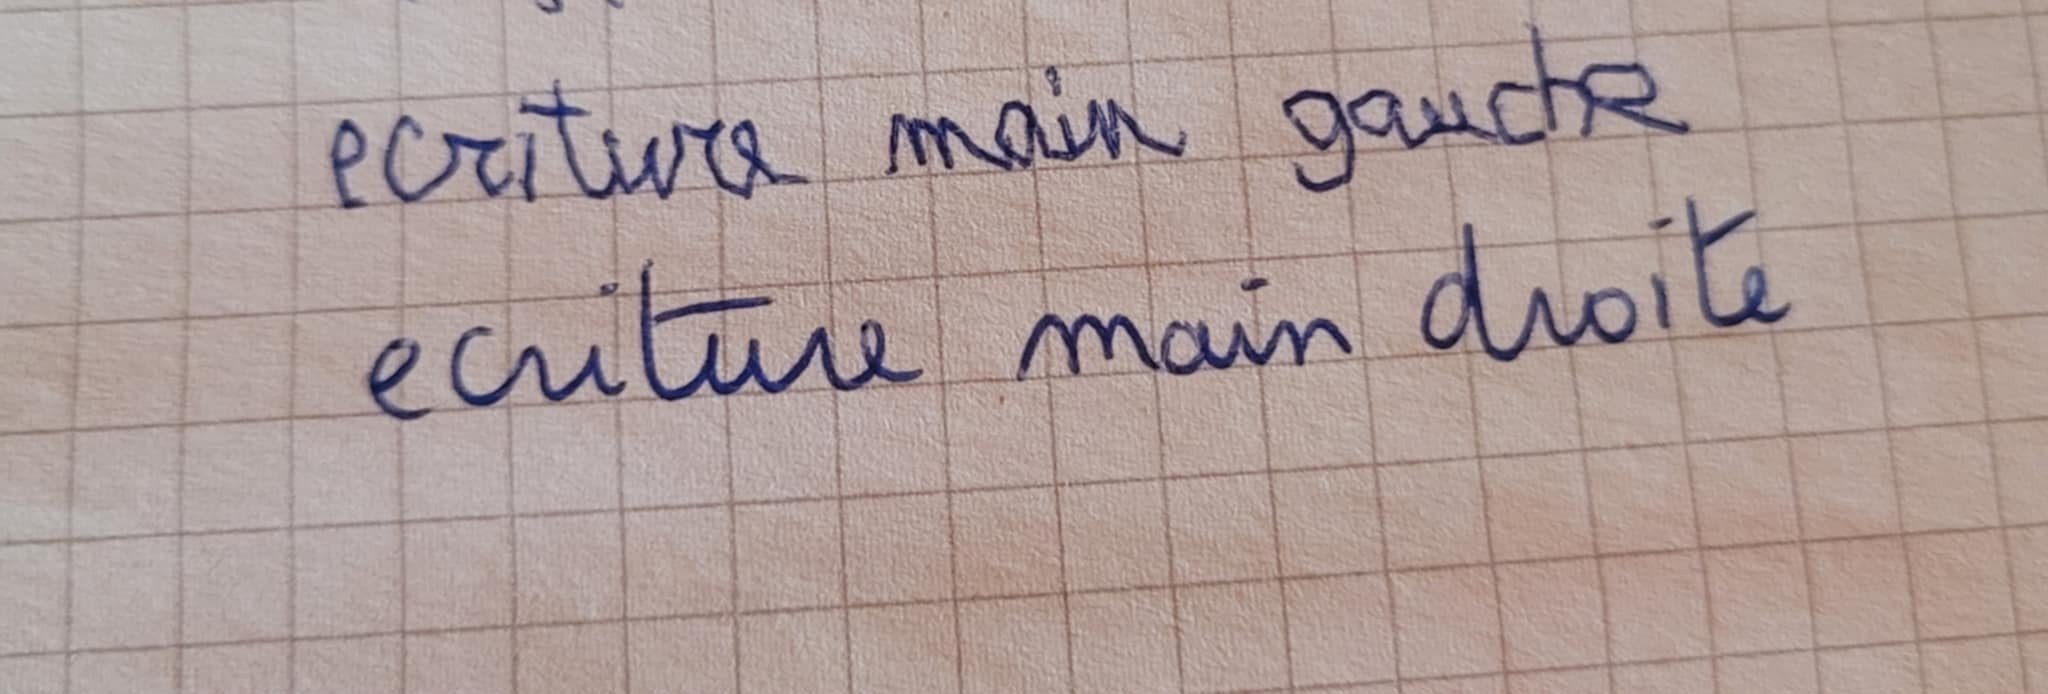 ecriture main gauche
ecriture main droite